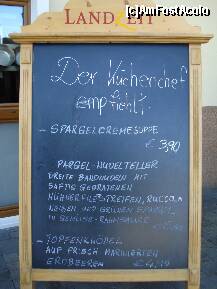 (c)AmFostAcolo
LANDZEIT
Der Küchenchef
empfiehlt:
- SPARGELCREMESUPPE
€ 3,90
SPARGEL-NUDELTELLER
BREITE BANDNUDELN MIT
SAFTIG GEBRATENEN
HÜHNERFILETSTREIFEN, RUCCOLA
WEISSEN UND GRÜNEN SPARGEL
IN GEMÜSE-RAHMSAUCE
- TOPFENKNÖDEL
AUF FRISCH MARINIERTEN
ERDBEEREN